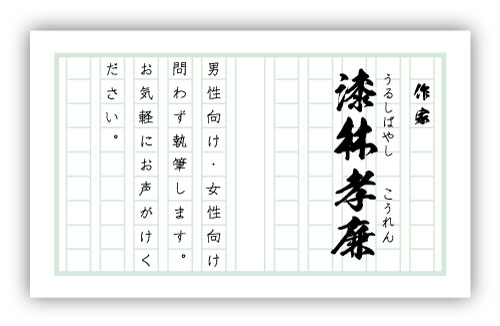 作家
うるしばやし こうれん
漆林孝廉
男性向け・女性向け
問わず執筆します。
お気軽にお声がけく
ださい。